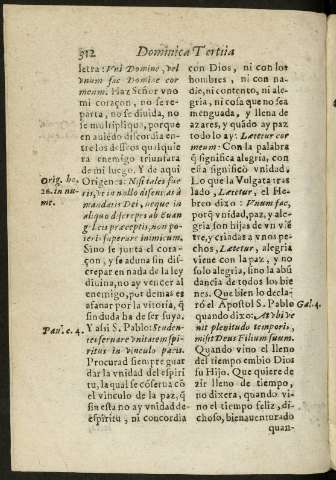 312 Dominica Tertiia
letra: Vni Domine, vel
vnum fac Domine cor
meum. Haz Señor vno
mi coraçon, no se re-
parta, no se diuida, no
se multiplique, porque
en auiēdo discordia en-
tre los desseos qualquie
ra enemigo triunfara
de mi luego. Y de aqui
Orig. ho.
26. in nu-
me.
Origenes: Nisi tales fue
ris, vt in nullo dissentias à
mandatis Dei, neque in
aliquo discrepes ab Euan
gelicis præceptis, non po-
teris superare inimicum.
Sino se junta el cora-
çon, y se aduna sin dis-
crepar en nada de la ley
diuina, no ay vencer al
enemigo, por demas es
afanar por la vitoria, q̄
sin duda ha de ser suya.
Pau. c. 4.
Y assi S. Pablo: Studen-
tes seruare vnitatem spi-
ritus in vinculo pacis.
Procurad siempre guar
dar la vnidad del espiri
tu, la qual se cōserua cō
el vinculo de la paz, q̄
sin esta no ay vnidad de
espiritu, ni concordia
con Dios, ni con los
hombres, ni con na-
die, ni contento, ni ale-
gria, ni cosa que no sea
menguada, y llena de
azares, y quādo ay paz
todo lo ay: Lætetur cor
meum: Con la palabra
q̄ significa alegria, con
essa significò vnidad.
Lo que la Vulgata tras
lado, Lætetur, el He-
breo dixo: Vnum fac,
porq̄ vnidad, paz, y ale-
gria son hijas de vn viē
tre, y criadas a vnos pe-
chos, Lætetur, alegria
viene con la paz, y no
solo alegria, sino la abū
dancia de todos los bie
nes. Que bien lo decla-
rò el Apostol S. Pablo
Gal. 4.
quando dixo: At vbi ve
nit plenitudo temporis,
misit Deus Filium suum.
Quando vino el lleno
del tiempo embio Dios
su Hijo. Que quiere de
zir lleno de tiempo,
no dixera, quando vi-
no el tiempo feliz, di-
choso, bienauenturado
quan-